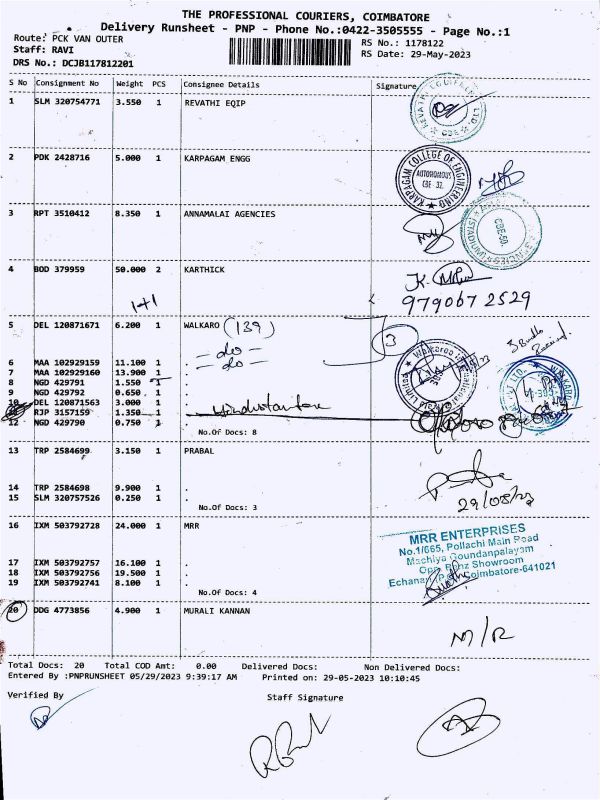 THE PROFESSIONAL COURIERS, COIMBATORE
Delivery Runsheet - PNP - Phone No.:0422-3505555 - Page No.:1
Route: PCK VAN OUTER
Staff: RAVI
DRS No.: DCJB117812201
RS No.: 1178122
RS Date: 29-May-2023
S No Consignment No Weight PCS Consignee Details Signature
1 SLM 320754771 3.550 1 REVATHI EQIP
2 PDK 2428716 5.000 1 KARPAGAM ENGG
KARPAGAM COLLEGE OF ENGINEERING
AUTONOMOUS
CBE - 32.
3 RPT 3510412 8.350 1 ANNAMALAI AGENCIES
CBE-50.
4 BOD 379959 50.000 2 KARTHICK
1+1
9790672529
5 DEL 120871671 6.200 1 WALKARO (139)
- do -
- do -
3
3 Bundle
Received.
6 MAA 102929159 11.100 1 .
7 MAA 102929160 13.900 1 .
8 NGD 429791 1.550 1 .
9 NGD 429792 0.650 1 .
10 DEL 120871563 3.000 1 .
11 RJP 3157159 1.350 1 .
12 NGD 429790 0.750 1 .
No.Of Docs: 8
13 TRP 2584699 3.150 1 PRABAL
14 TRP 2584698 9.900 1 .
15 SLM 320757526 0.250 1 .
No.Of Docs: 3
29/05/23
16 IXM 503792728 24.000 1 MRR
MRR ENTERPRISES
No.1/665, Pollachi Main Road
Machiya Goundanpalayam
Opp. Benz Showroom
Echanari P.O Coimbatore-641021
17 IXM 503792757 16.100 1 .
18 IXM 503792756 19.500 1 .
19 IXM 503792741 8.100 1 .
No.Of Docs: 4
20 DDG 4773856 4.900 1 MURALI KANNAN
M/R
Total Docs: 20 Total COD Amt: 0.00 Delivered Docs: Non Delivered Docs:
Entered By :PNPRUNSHEET 05/29/2023 9:39:17 AM Printed on: 29-05-2023 10:10:45
Verified By
Staff Signature